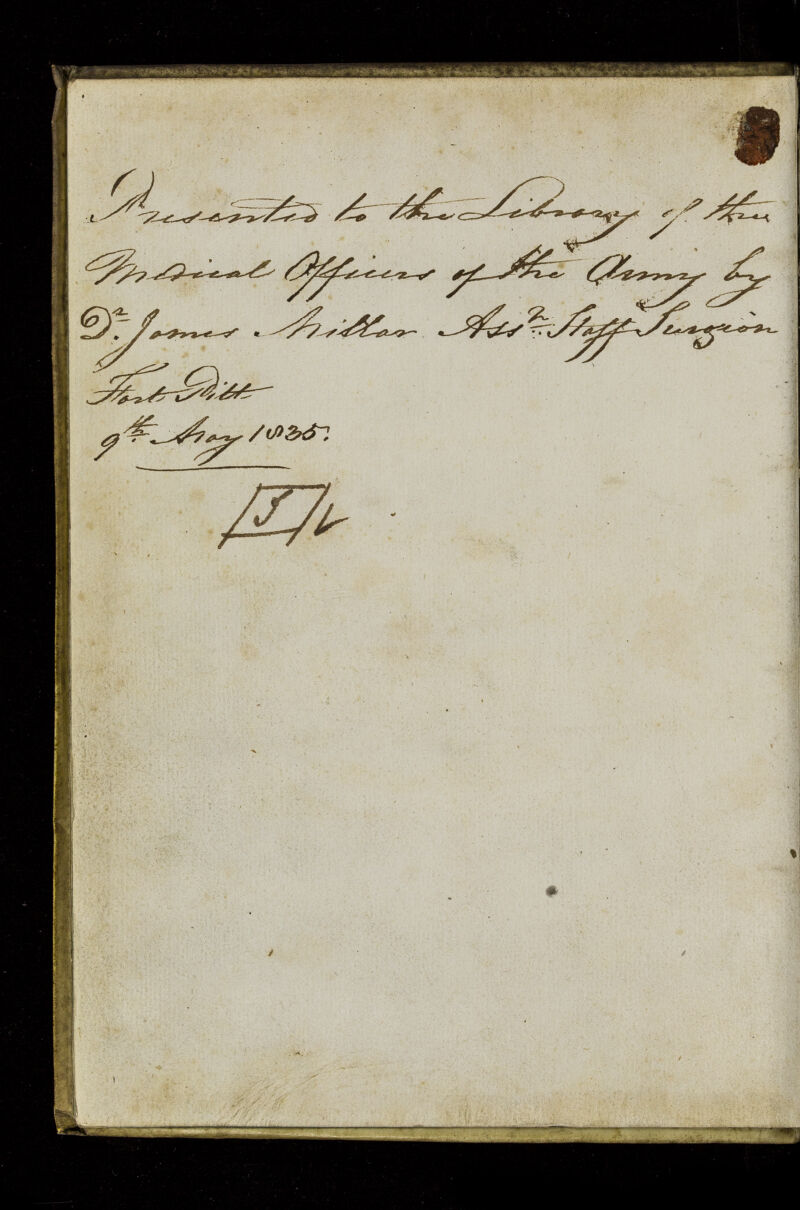 Presented to the Library of the
Medical Officers of the Army by
Dr. James Millar Asst. Staff Surgeon
Fort Pitt
9th. May 1835.